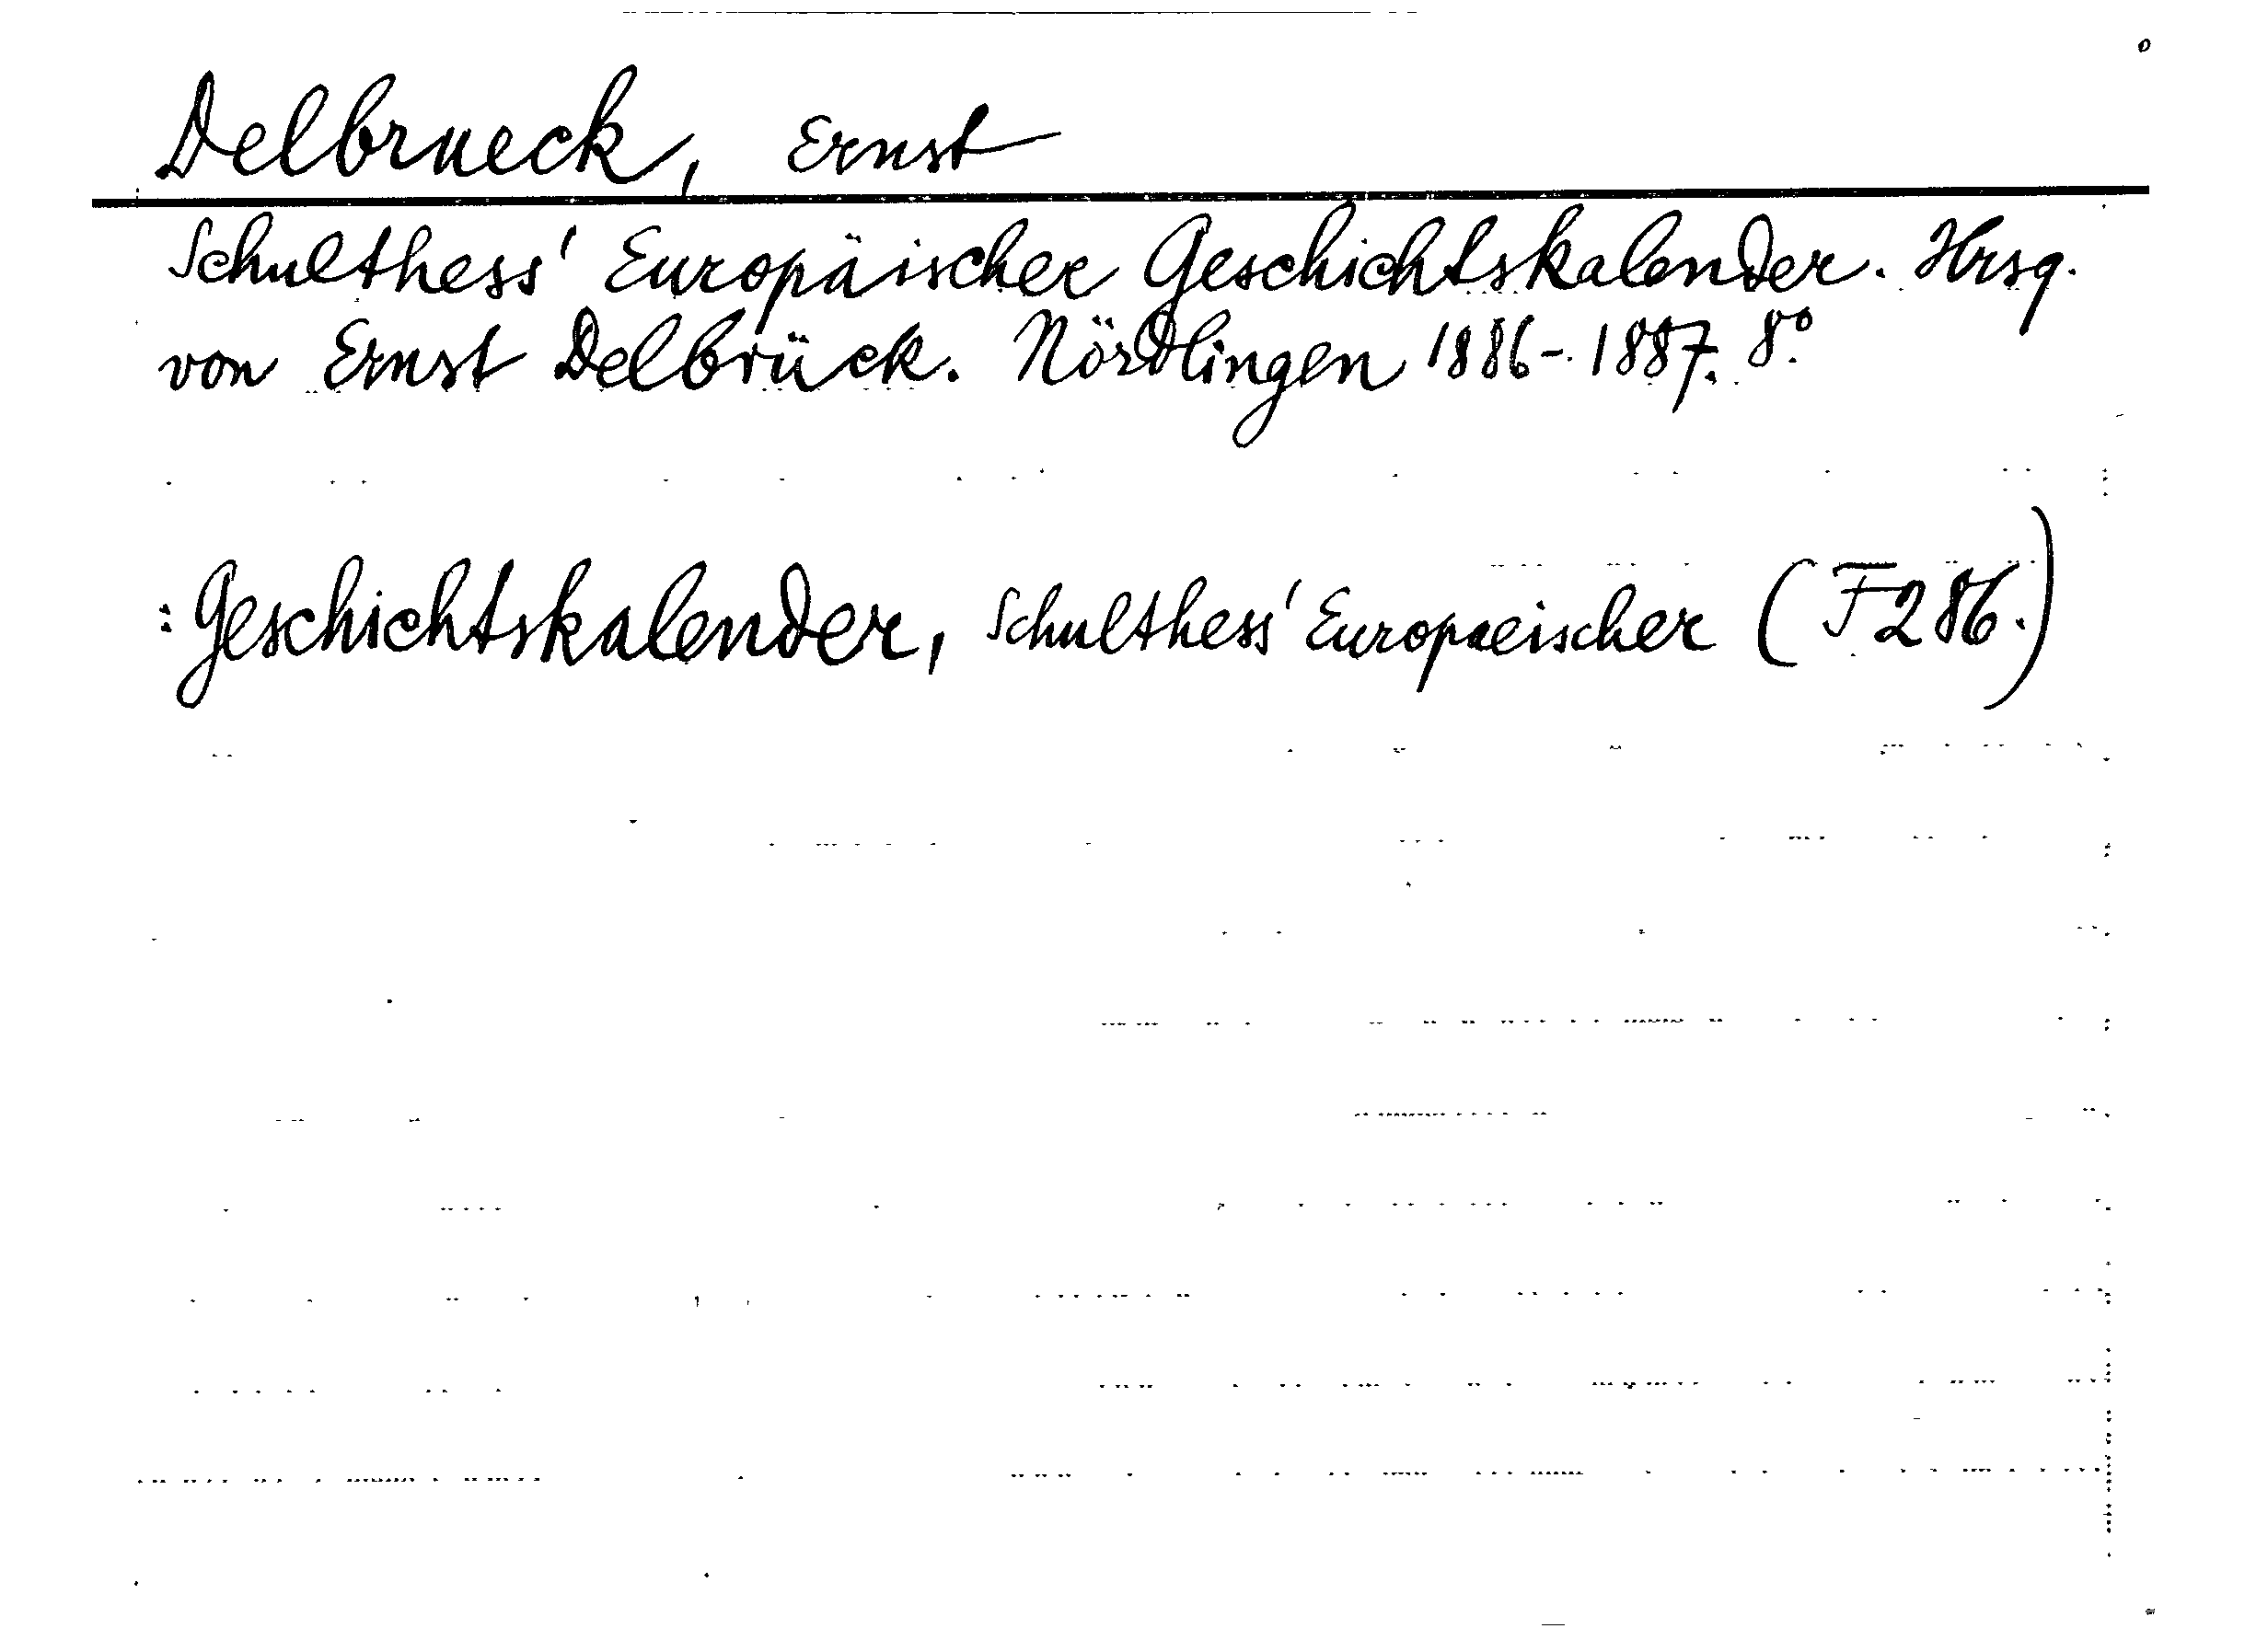 Delbrueck, Ernst
Schulthess' Europäischer Geschichtskalender. Hrsg.
von Ernst Delbrück. Nördlingen 1886-1887. 8°.
: Geschichtskalender, Schulthess' Europaeischer (F286.)